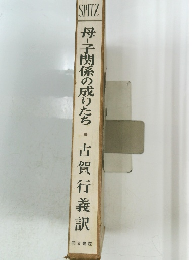 SPITZ
母-子関係の成りたち
古賀行義訳